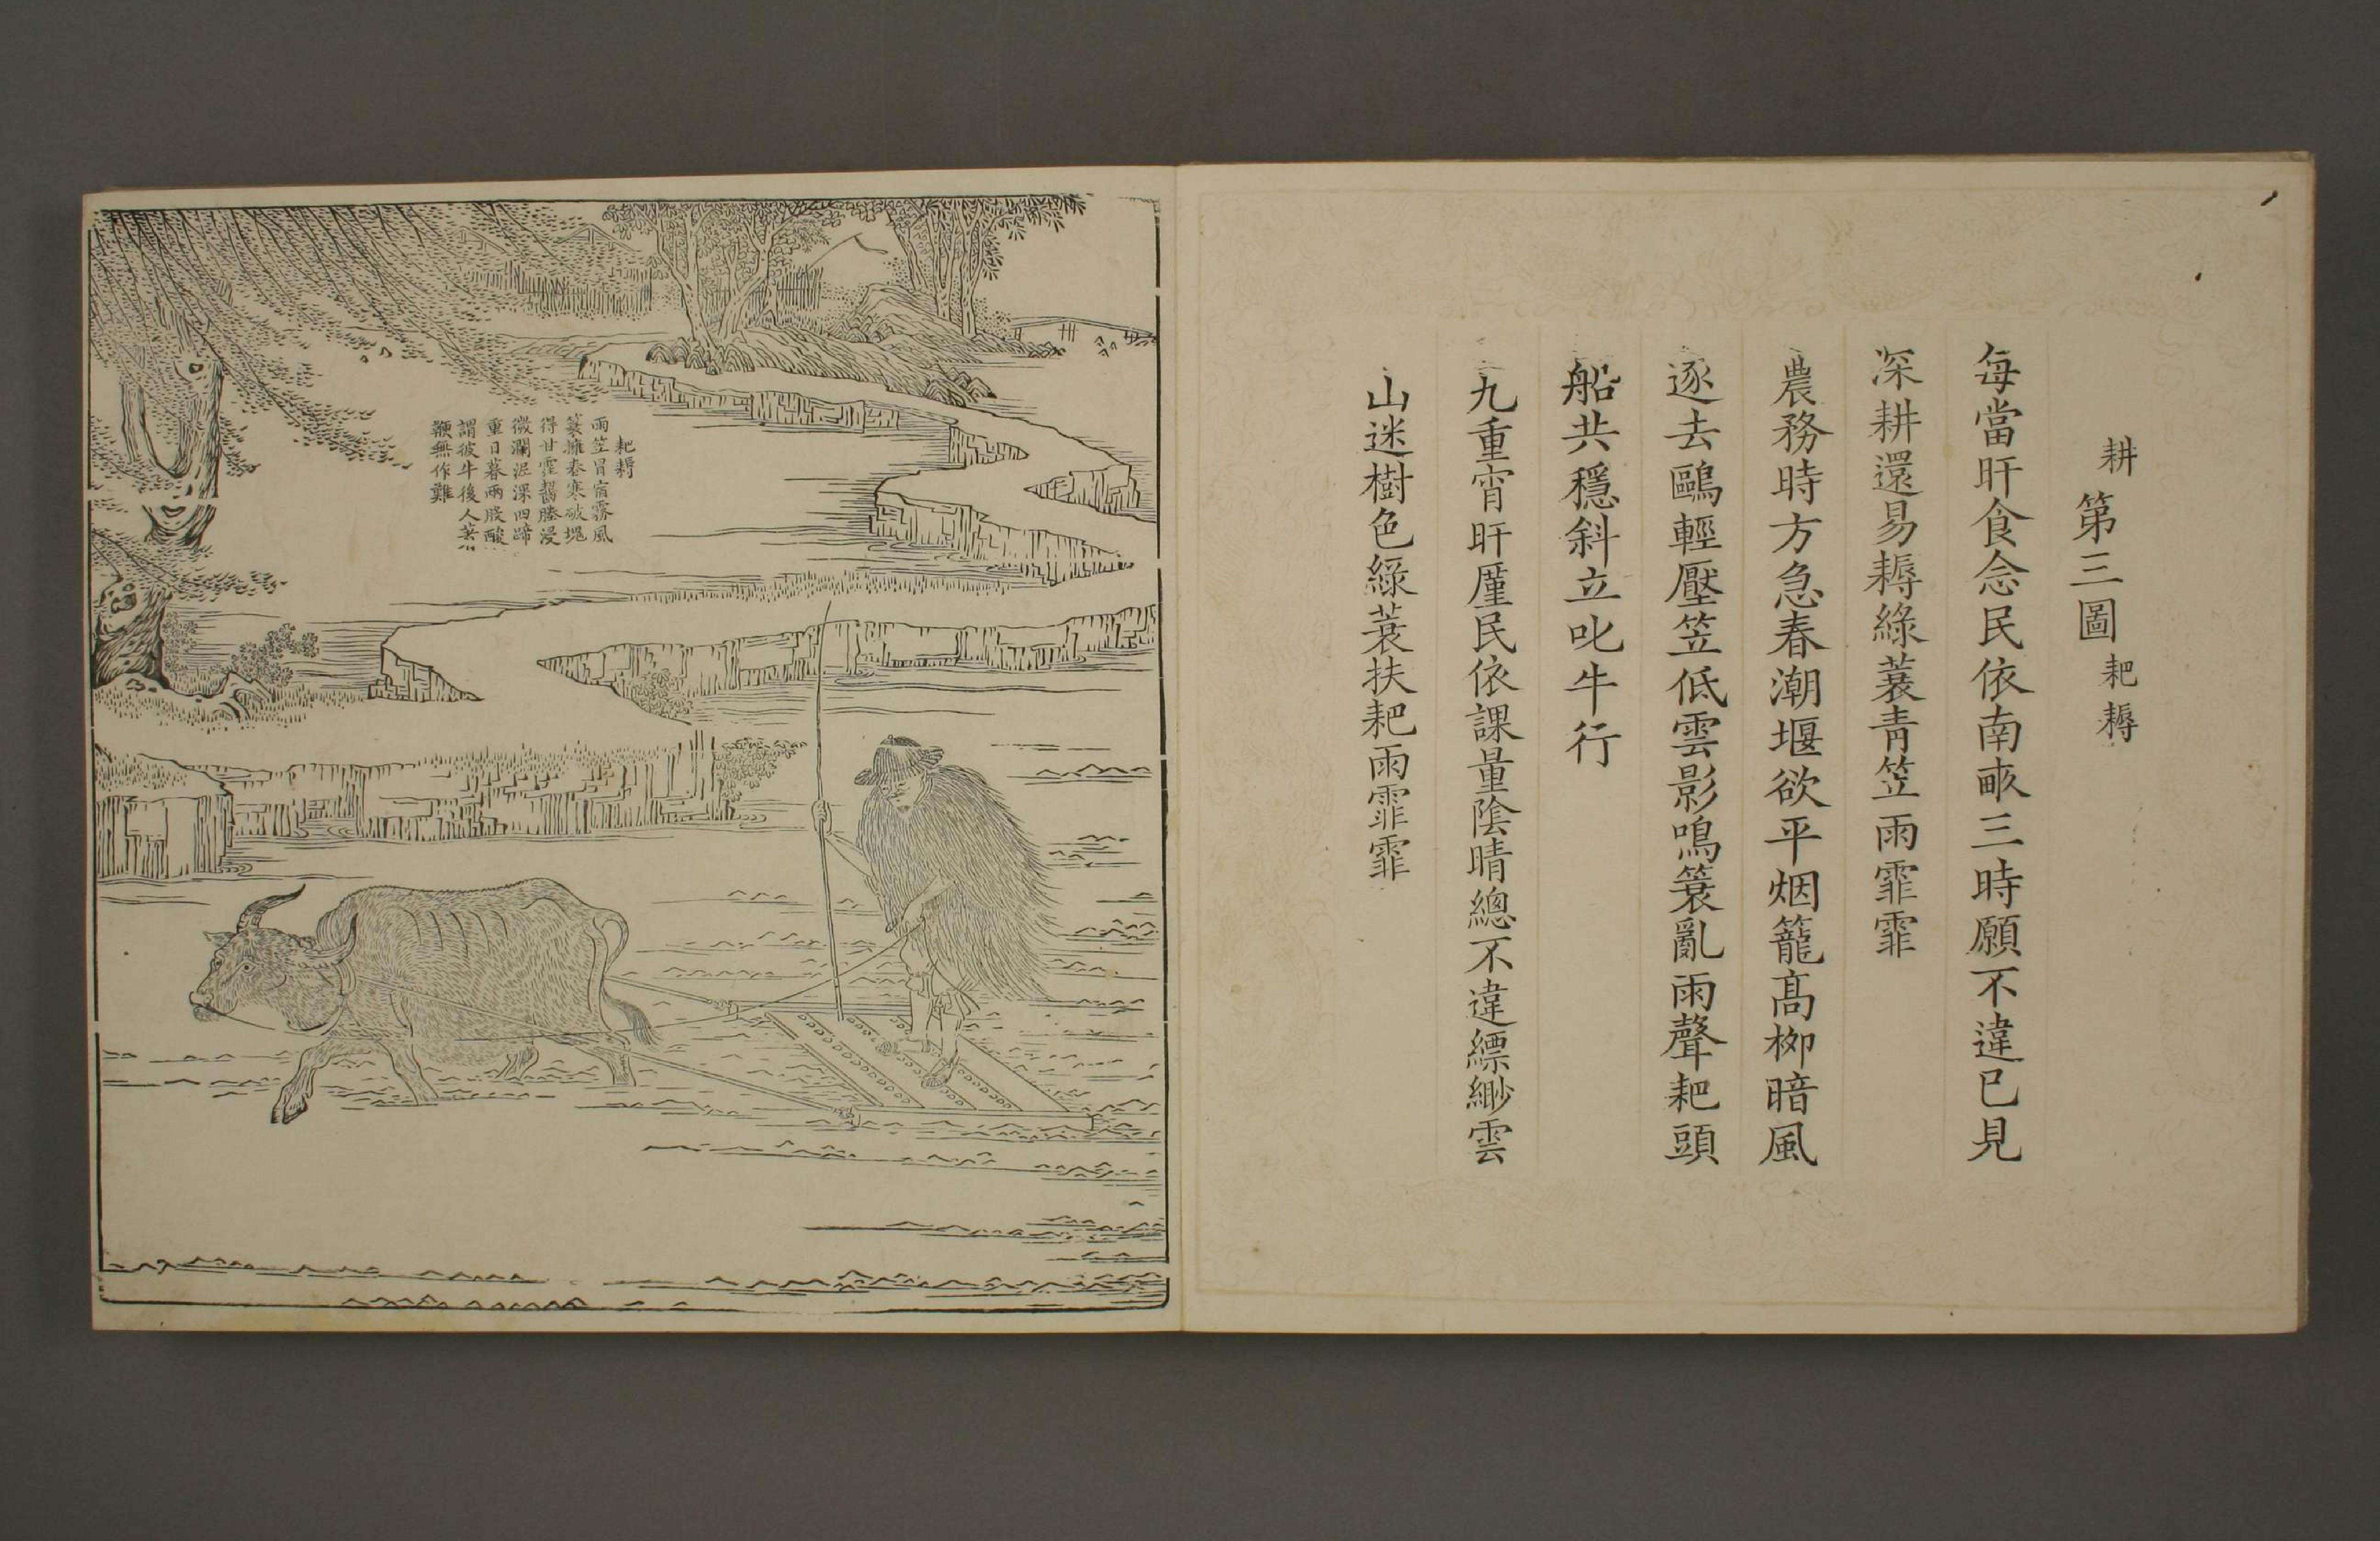 耕第三圖耙耨
每當旰食念民依南畞三時願不違已見
深耕還易耨綠蓑青笠雨霏霏
農務時方急春潮堰欲平烟籠髙栁暗風
逐去鷗輕壓笠低雲影鳴簑亂雨聲耙頭
船共穩斜立叱牛行
九重宵旰厪民依課量陰晴總不違縹緲雲
山迷樹色綠蓑扶耙雨霏霏
耙耨
雨笠冒宿霧風
蓑擁春寒破塊
得甘霔齧塍浸
微瀾泥深四蹄
重日暮兩股酸
謂彼牛後人著
鞭無作難